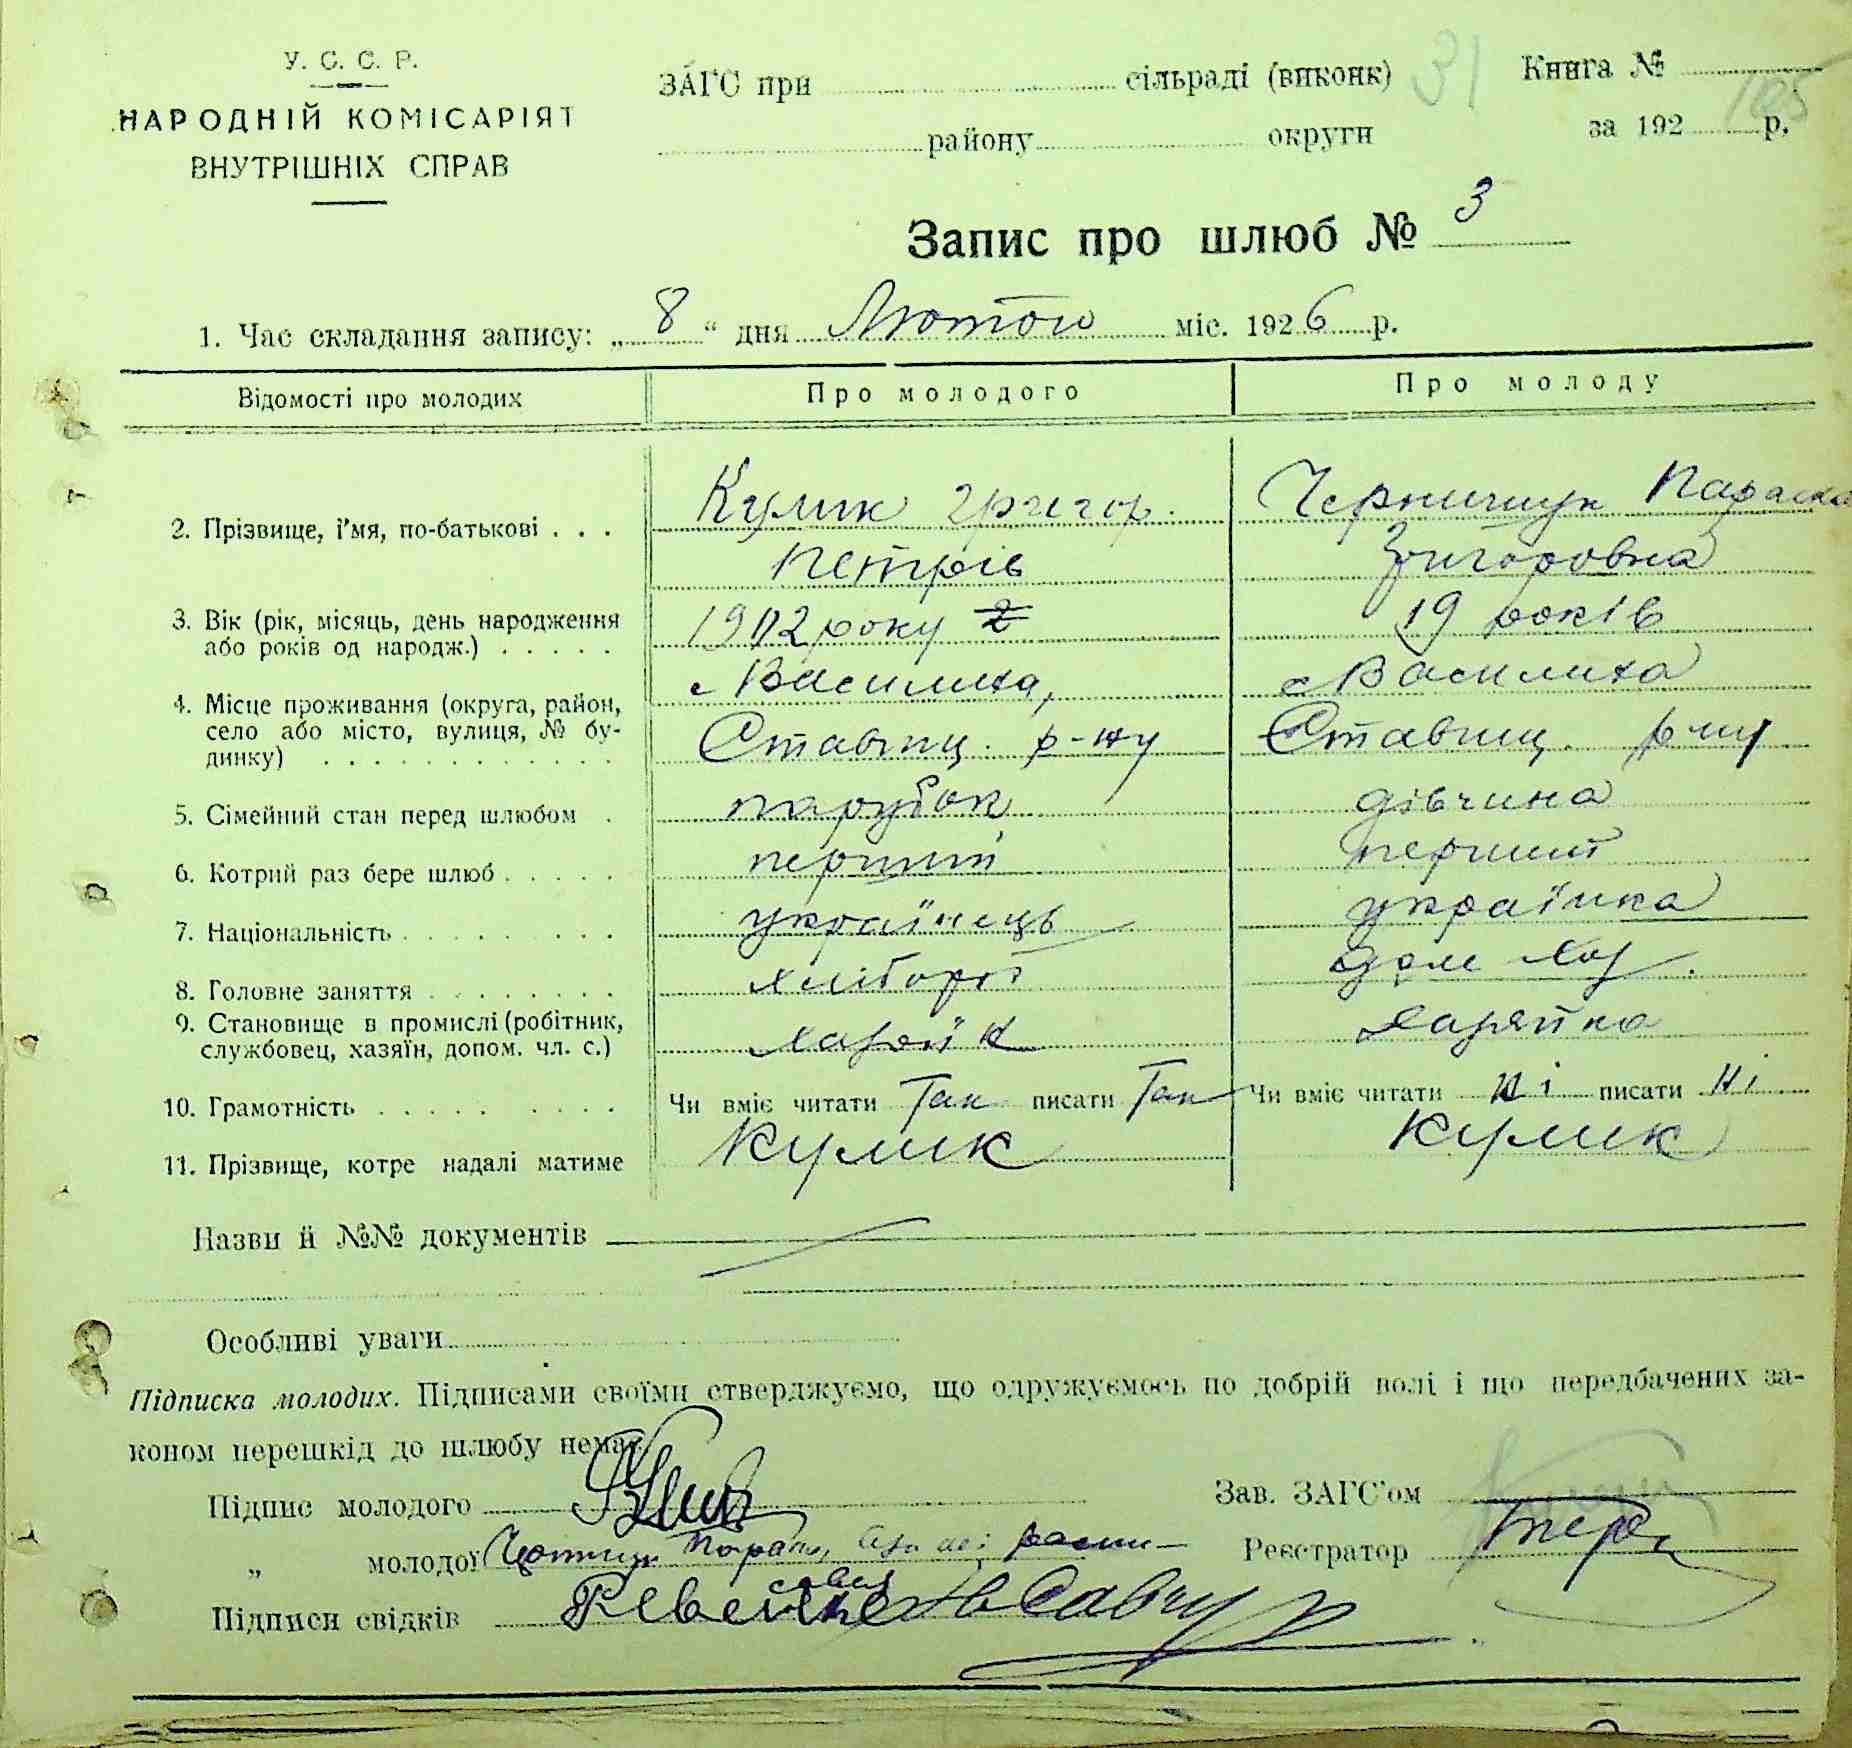 У. С. С. Р.
НАРОДНІЙ КОМІСАРІЯТ
ВНУТРІШНІХ СПРАВ
ЗАГС при сільраді (виконк) 31 Книга №
району округи за 192 р.
105
Запис про шлюб № 3
1. Час складання запису: „ 8 “ дня Лютого міс. 1926 р.
Відомості про молодих Про молодого Про молоду
2. Прізвище, ім'я, по-батькові . . . Кулик Григор. Петрів
Чернищук Параска Григоровна
3. Вік (рік, місяць, день народження або років од народж.) . . . . . 1902 року 19 років
4. Місце проживання (округа, район, село або місто, вулиця, № будинку) . . . . . . . . . . . .
с Василиха, Ставищ. р-ну
с Василиха Ставищ. р-ну
5. Сімейний стан перед шлюбом . парубок дівчина
6. Котрий раз бере шлюб . . . . . перший перший
7. Національність . . . . . . . . . українець українка
8. Головне заняття . . . . . . . . хлібороб дом хаз.
9. Становище в промислі (робітник, службовец, хазяїн, допом. чл. с.) хазяїн хазяйка
10. Грамотність . . . . . . . . . Чи вміє читати Так писати Так Чи вміє читати ні писати ні
11. Прізвище, котре надалі матиме Кулик Кулик
Назви й №№ документів
Особливі уваги
Підписка молодих. Підписами своїми стверджуємо, що одружуємось по добрій волі і що передбачених за-
коном перешкід до шлюбу немає.
Підпис молодого
Зав. ЗАГС'ом
„ молодої
Реєстратор
Підписи свідків